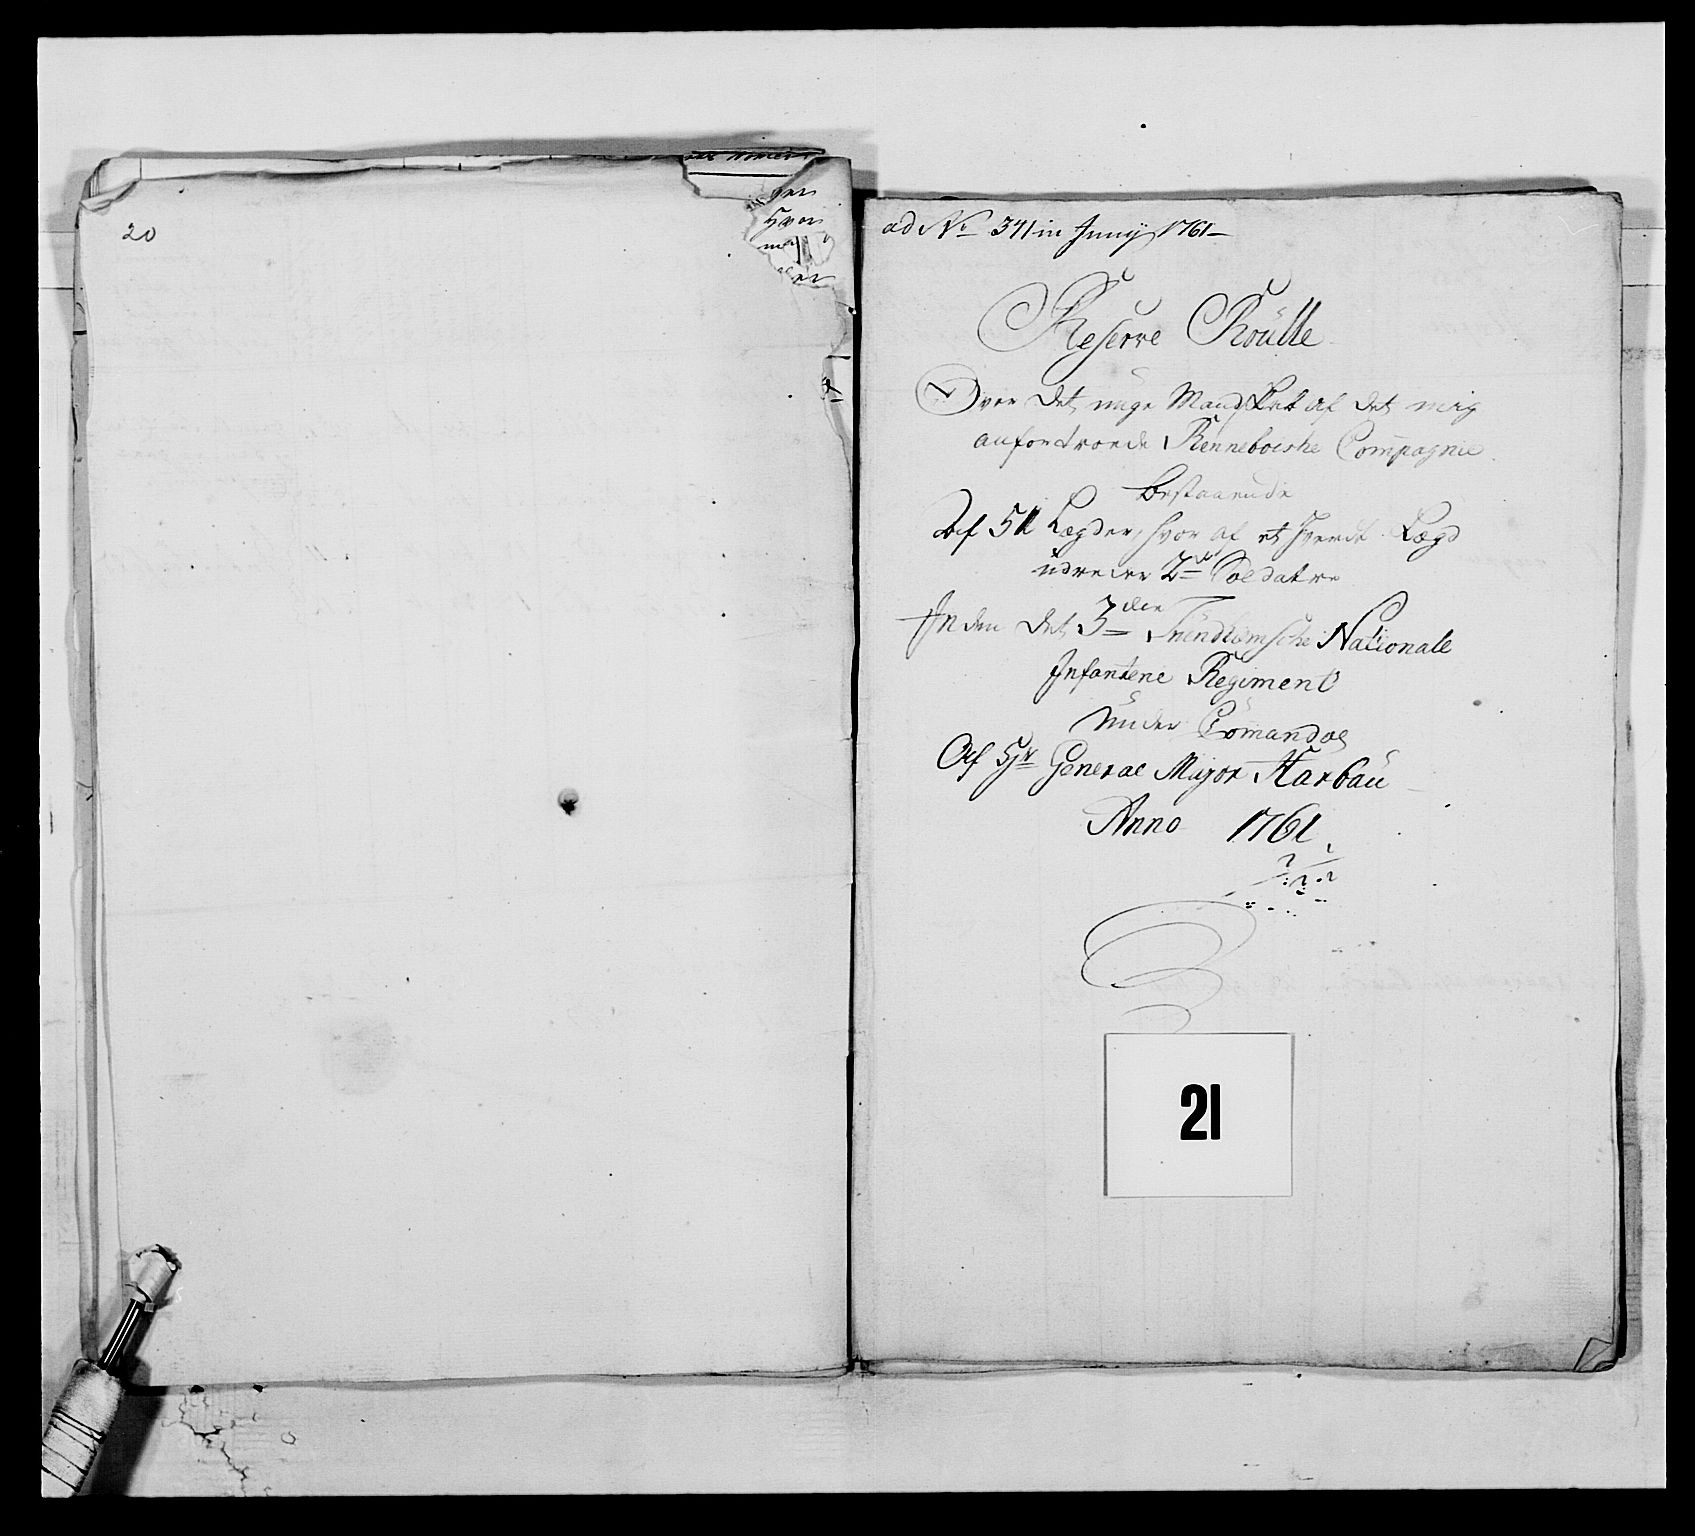 20
ad No 341 in Junij 1761
Reserve Roulle
Over det unge Mandskab af det mig
anfortroede Renneboeshe Compagnie
bestaaende
Af 51 Lægder, hvor af et hverdt Lægd
udreder 2de Soldatre
Inden det 3die Trundhiemsche Nationale
Infanterie Regiment
Under Comando
Af Hr General Major Harbau
Anno 1761
21